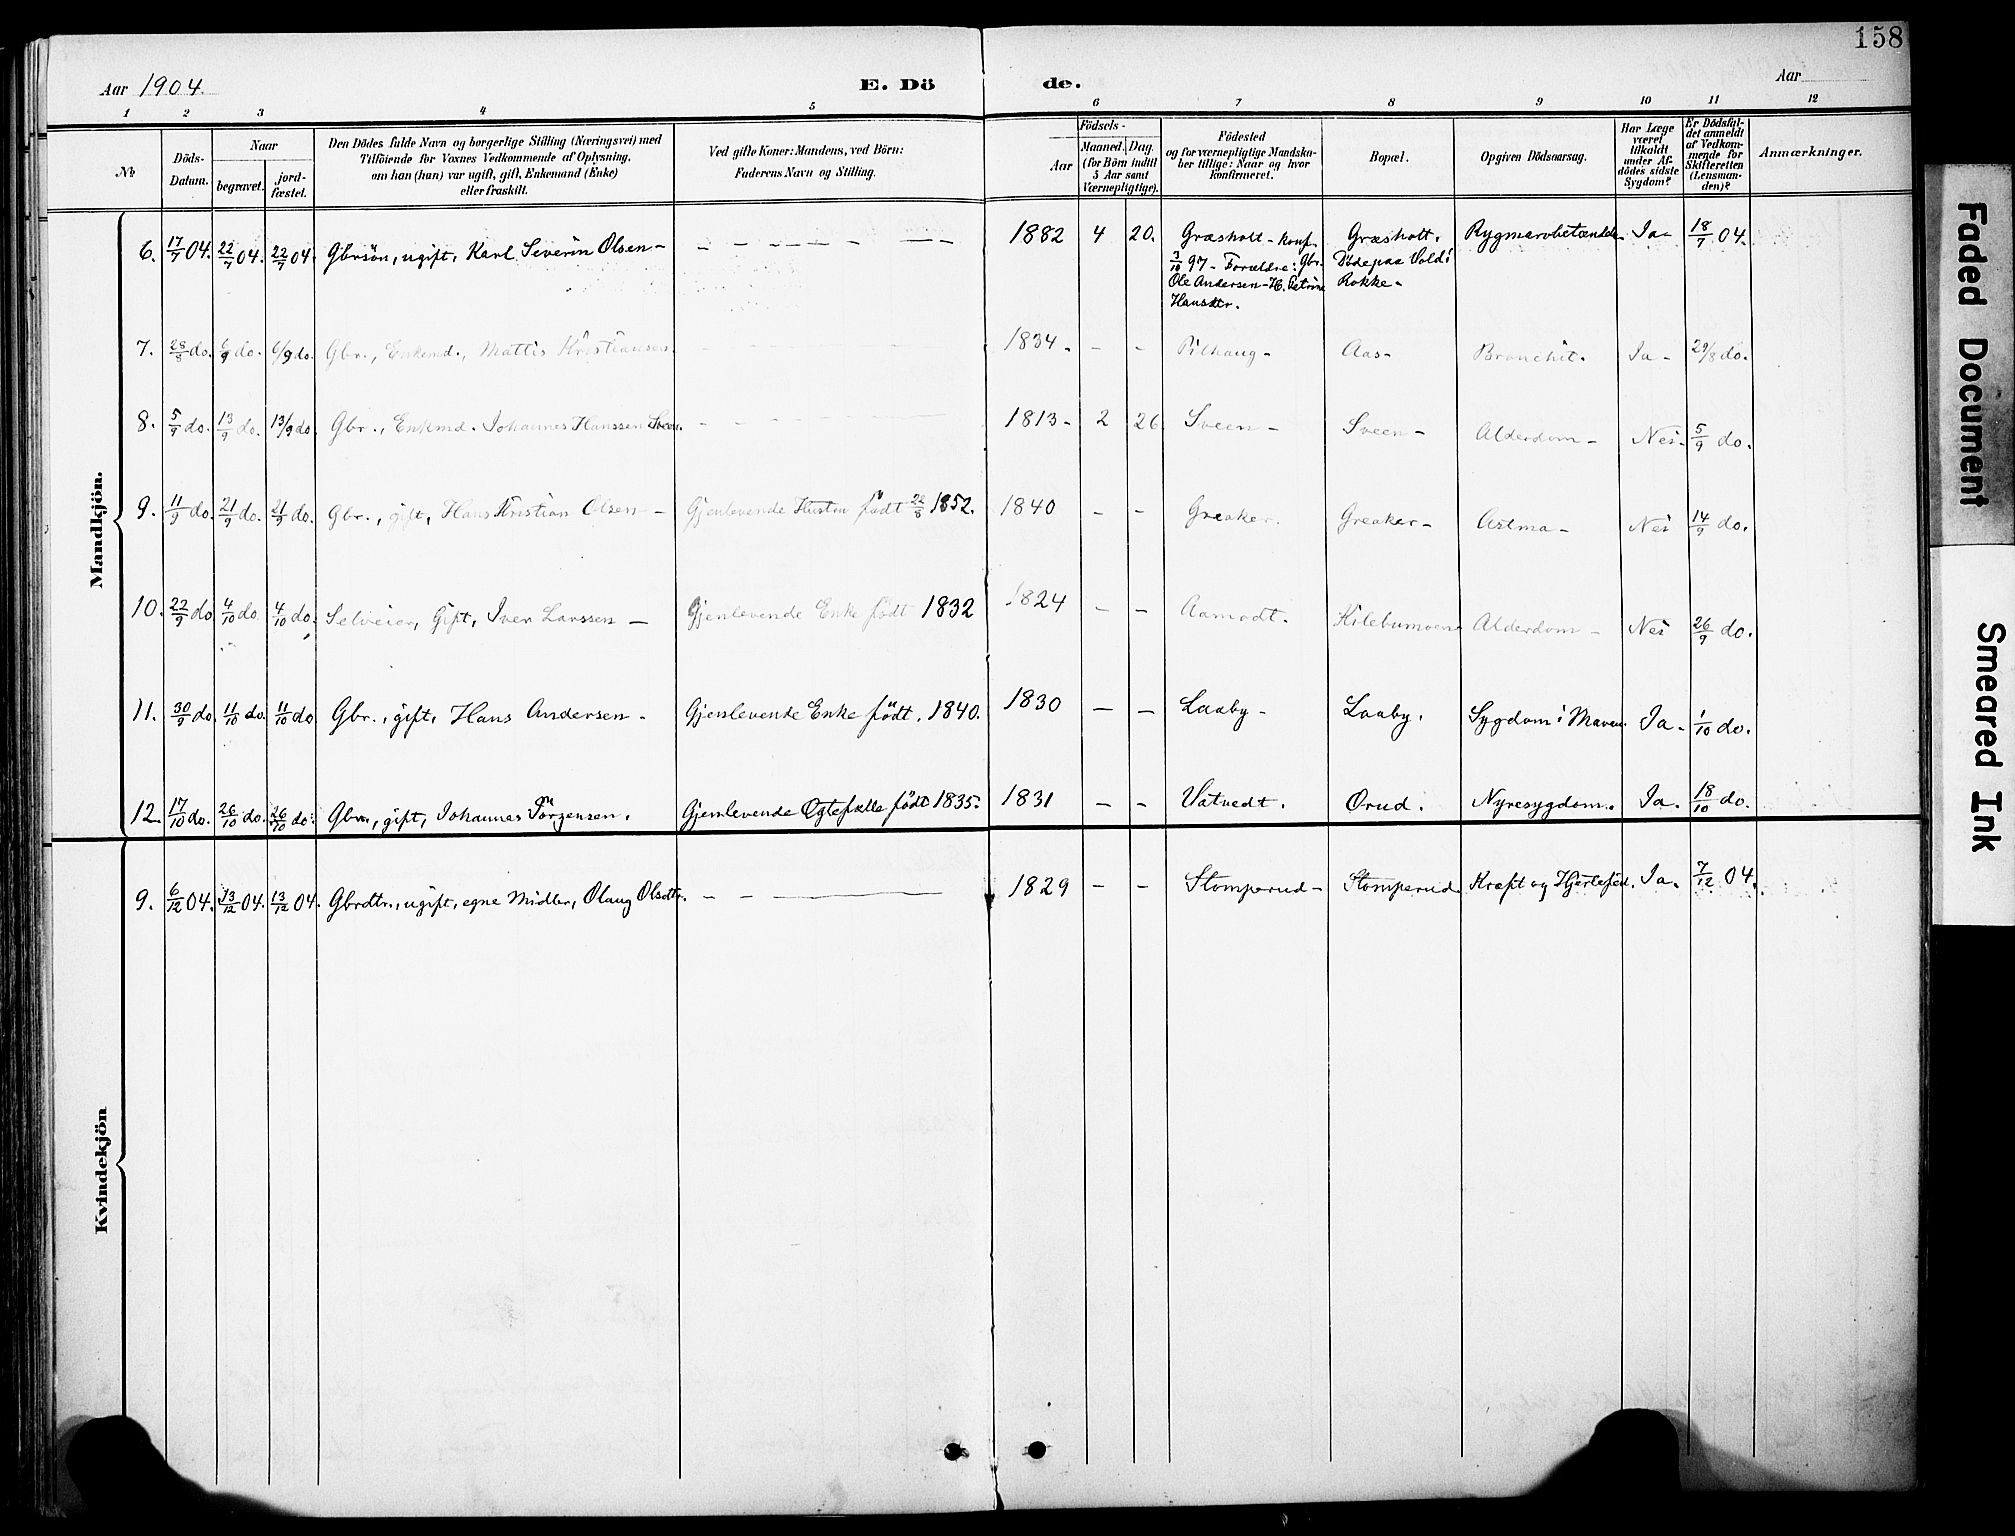 158
Aar 1904.
E. Dö de.
Aar
1 2 3 4 5 6 7 8 9 10 11 12
No
Döds-Datum.
Naar
begravet.
jord-fæstet.
Den Dödes fulde Navn og borgerlige Stilling (Næringsvei) med
Tilföiende for Voxnes Vedkommende af Oplysning,
om han (hun) var ugift, gift, Enkemand (Enke)
eller fraskilt.
Ved gifte Koner: Mandens, ved Börn:
Faderens Navn og Stilling.
Födsels-
Aar
Maaned. Dag.
(for Börn indtil
5 Aar samt
Værnepligtige).
Födested
og for værnepligtige Mandska-
ber tillige: Naar og hvor
konfirmeret.
Bopæl.
Opgiven Dödsaarsag.
Har Læge
været
tilkaldt
under Af-
dödes sidste
Sygdom?
Er Dödsfal-
det anmeldt
af Vedkom-
mende for
Skifteretten
(Lensman-
den)?
Anmærkninger.
Mandkjön.
6. 17/7 04. 22/7 04. 22/7 04. Gbrsön, ugift, Karl Severin Olsen - 1882 4 20. Græsholt - konf. Græsholt. Rygmarvbetændels Ja - 18/7 04.
3/10 97 - Forældre: Gbr. Döde paa Vold i
Ole Andersen - H. Petrine Rokke -
Hansdtr.
7. 28/8 do. 6/9 do. 6/9 do. Gbr., Enkemd., Mattis Kristiansen. 1834 - - - Pilhaug - Aas - Bronchit. Ja - 29/8 do.
8. 5/9 do. 13/9 do. 13/9 do. Gbr., Enkmd. Johannes Hanssen Sveen. 1813 - 2 26 Sveen - Sveen - Alderdom - Nei - 5/9 do.
9. 11/9 do. 21/9 do. 21/9 do. Gbr., gift, Hans Kristian Olsen - Gjenlevende Hustru födt 22/8 1852. 1840 - - Greaker. Greaker - Astma - Nei 14/9 do.
10. 22/9 do 4/10 do 4/10 do. Selveier, Gift, Iver Larssen - Gjenlevende Enke födt 1832 1824 - - Aamodt. Kilebumoen Alderdom - Nei 26/9 do.
11. 30/9 do. 11/10 do. 11/10 do Gbr., gift, Hans Andersen - Gjenlevende Enke födt. 1840. 1830 - - Laaby - Laaby. Sygdom i Maven. Ja - 1/10 do.
12. 17/10 do. 26/10 do. 26/10 do. Gbr., gift, Johannes Jörgensen. Gjenlevende Egtefælle födt 1835. 1831 - - Vatvedt. Orud. Nyresygdom. Ja. 18/10 do.
Kvindekjön
9. 6/12 04. 13/12 04. 13/12 04. Gbrdtr., ugift, egne Midler, Olaug Olsdtr. 1829 - - Stomperud - Stomperud Kræft og Hjertefeil. Ja. 7/12 04.
Faded Document
Smeared Ink